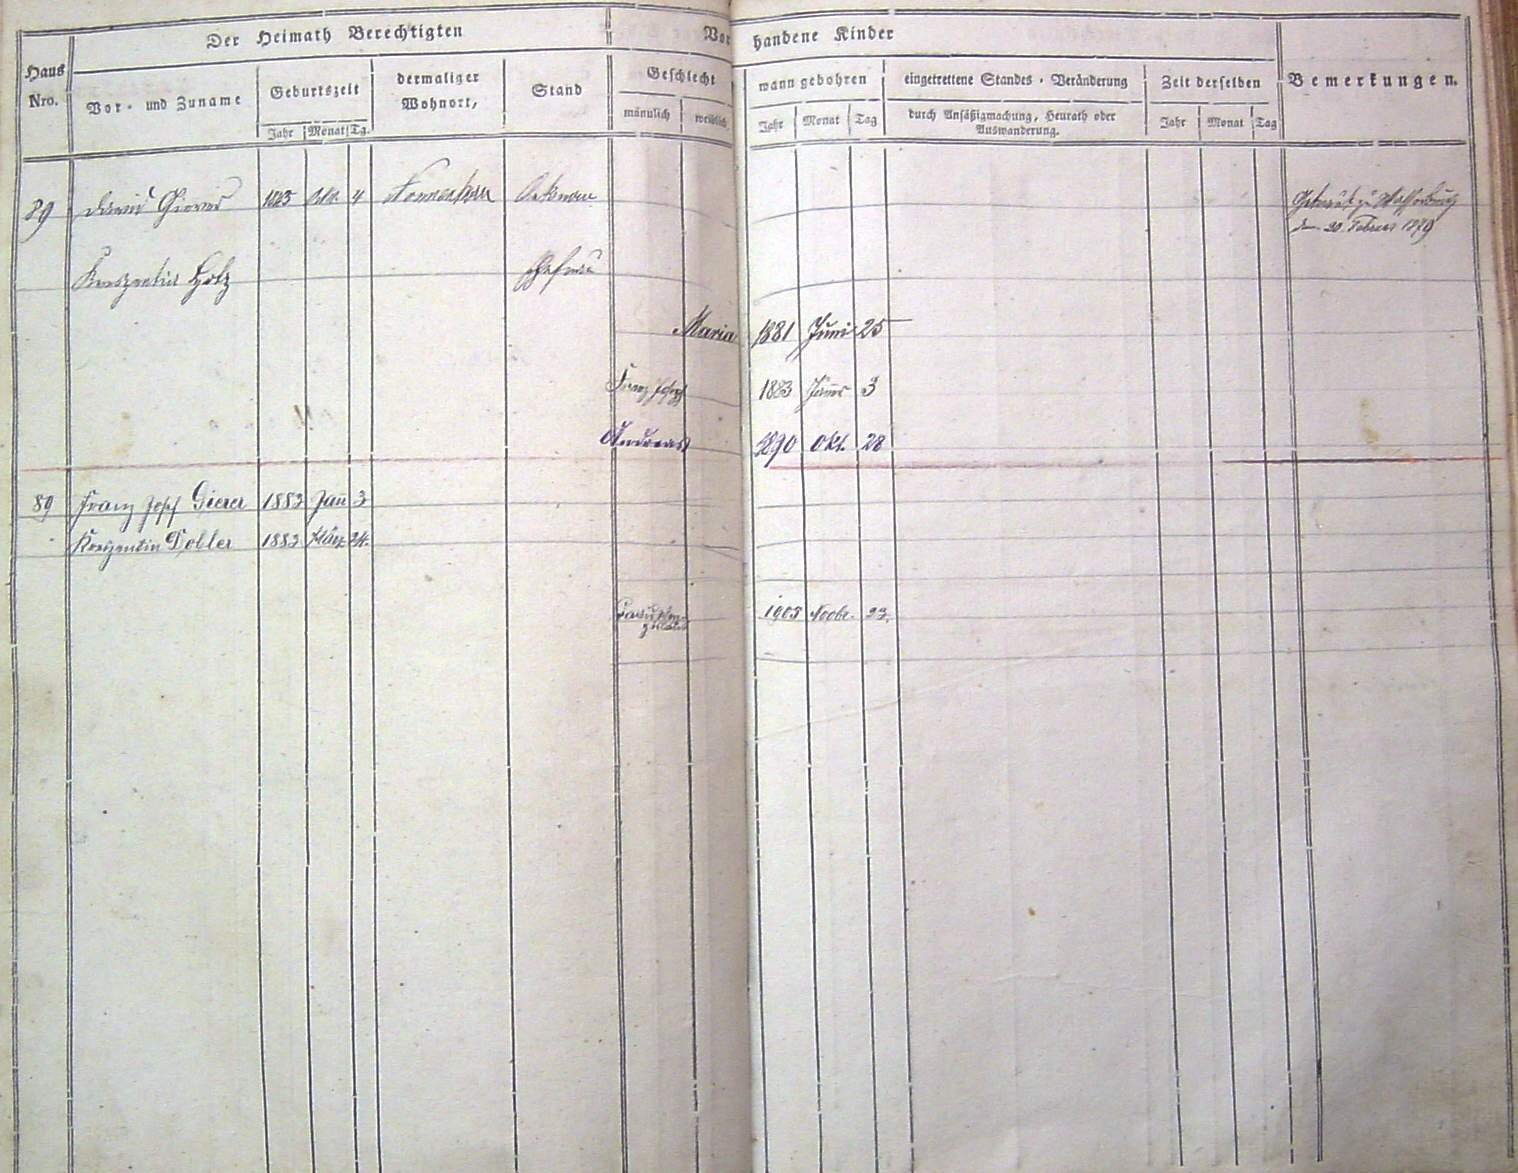 Der Heimath Berechtigten
Vorhandene Kinder
Haus Nro.
Vor- und Zuname
Geburtszeit
dermaliger Wohnort,
Stand
Geschlecht
wann gebohren
eingetrettene Standes-Veränderung
Zeit derselben
Bemerkungen.
Jahr Monat Tg.
männlich weiblich
Jahr Monat Tag
durch Ansäßigmachung, Heurath oder
Auswanderung.
Jahr Monat Tag
89 David Gierer 4
den 20. Februar 1879
Kreszentia Ehefrau
Maria 1881 Juni 25
Franz Josef 1883 3
Andreas 1890 Okt. 28
89 Franz Josef Gierer 1883 Jan 3
Kreszentia Dobler 1883 März 24.
1905 Novbr. 23.